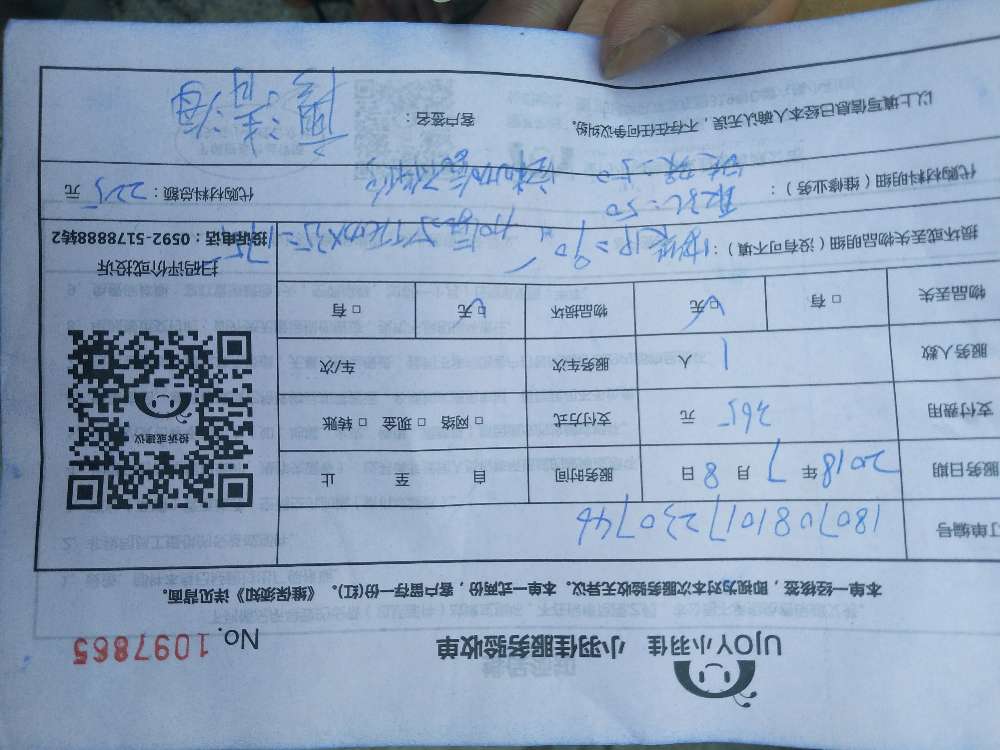 UJOY小羽佳 小羽佳服务验收单 No. 1097865
本单一经核签，即视为对本次服务验收无异议。本单一式两份，客户留存一份(红)。《维保须知》详见背面。
订单编号 180708101723074
服务日期 2018 年 7 月 8 日 服务时间 自 至 止
支付费用 265 元 支付方式 □ 网络 □ 现金 □ 转账
服务人数 1 人 服务车次 车/次
物品丢失 □ 有 □ 无 物品损坏 □ 无 □ 有
投诉或建议
扫码评价或投诉
投诉电话：0592-5178888转2
损坏或丢失物品明细（没有可不填）： =90 ×35=175
代购材料明细（维修业务）： =50 代购材料总额：225 元
以上填写信息已经本人确认无误，不存在任何争议纠纷。 客户签名：